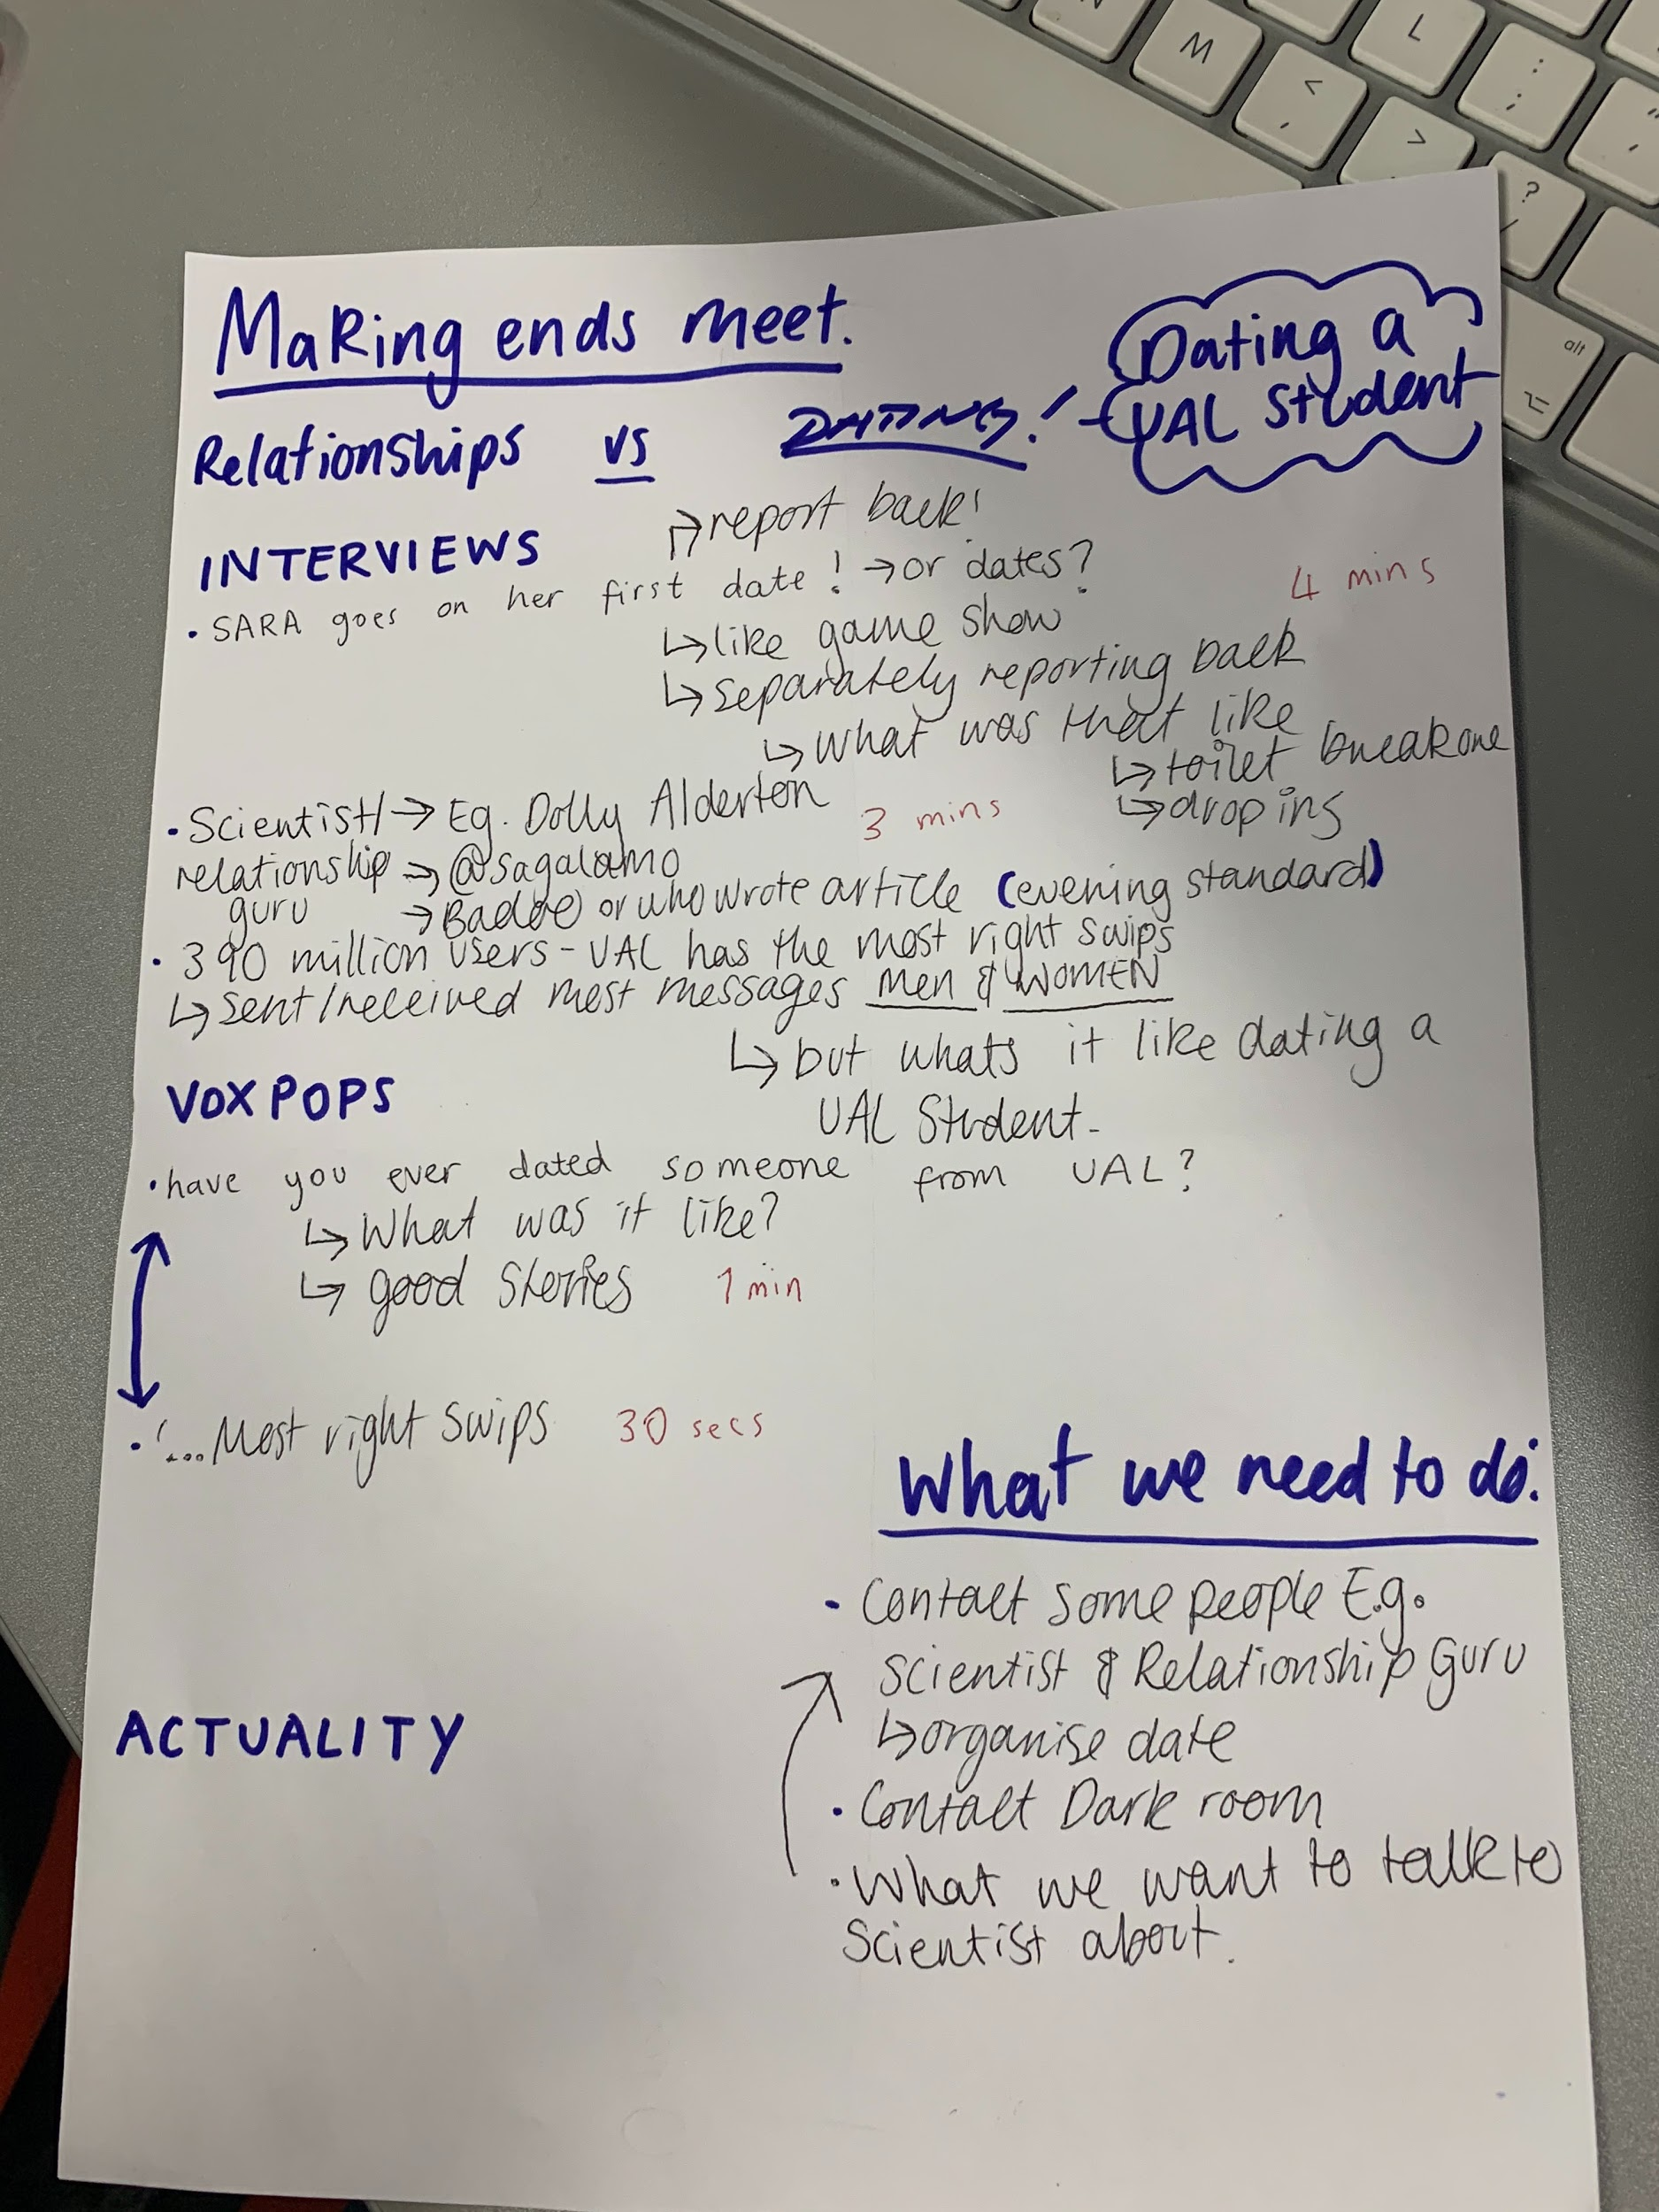 N
M
L
<
,
:
;
"
,
>
.
?
/
alt
⌥
Making ends meet.
Dating a
UAL Student
Relationships vs DATING!
INTERVIEWS
↱ report back!
• SARA goes on her first date! → or dates?
4 mins
↳ like game show
↳ separately reporting back
↳ what was that like
↳ toilet break one
↳ drop ins
• Scientist/ → Eg. Dolly Alderton 3 mins
relationship → @sagalamo
guru → Badoo or who wrote article (evening standard)
• 390 million users - UAL has the most right swips
↳ sent/received most messages men & WOMEN
↳ but whats it like dating a
UAL Student -
VOXPOPS
• have you ever dated someone from UAL?
↳ What was it like?
↳ good stories 1 min
• '...Most right swips 30 secs
What we need to do:
• Contact some people E.g.
Scientist & Relationship Guru
↳ organise date
• Contact Dark room
• What we want to talk to
Scientist about.
ACTUALITY